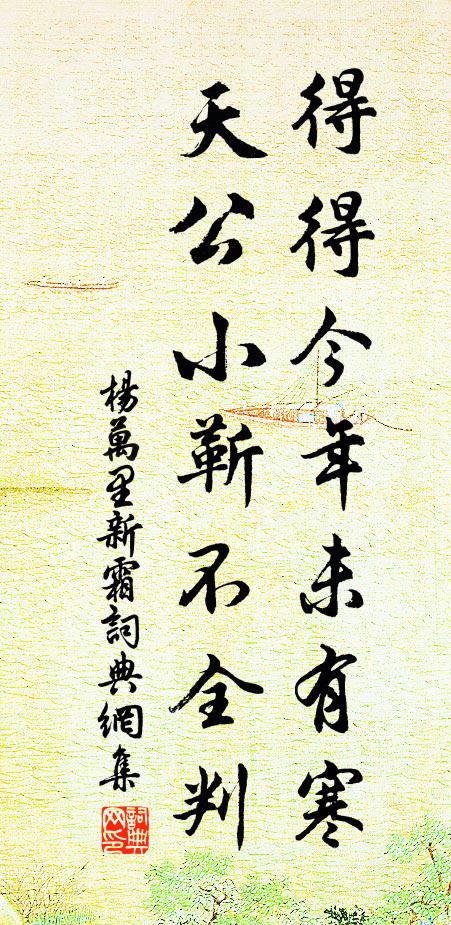 得得今年未有寒
天公小靳不全判
楊萬里新霜詞典網集
詞典網印